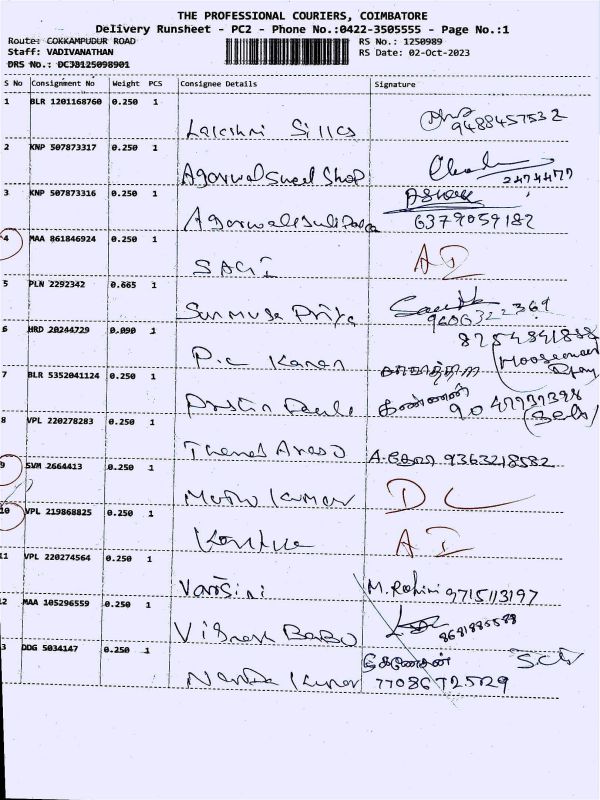 THE PROFESSIONAL COURIERS, COIMBATORE
Delivery Runsheet - PC2 - Phone No.:0422-3505555 - Page No.:1
Route: COKKAMPUDUR ROAD
RS No.: 1250989
Staff: VADIVANATHAN
RS Date: 02-Oct-2023
DRS No.: DCJB125098901
S No Consignment No Weight PCS Consignee Details Signature
1 BLR 1201168760 0.250 1
Lakshmi Silks 9488457532
2 KNP 507873317 0.250 1
Agarwal Sweet Shop 2474477
3 KNP 507873316 0.250 1 Ashok
Agarwal 6379059182
4 MAA 861846924 0.250 1
SAGI AI
5 PLN 2292342 0.665 1
Sanmuga Priya 9606322369
6 HRD 20244729 0.090 1 8254841888
P.c Kanan
7 BLR 5352041124 0.250 1
கண்ணன்
8 VPL 220278283 0.250 1
Arasu A. 9363218582
9 SVM 2664413 0.250 1
Muthu Kumar DL
10 VPL 219868825 0.250 1
AI
11 VPL 220274564 0.250 1
Varsini M. Rohini 9715113197
12 MAA 105296559 0.250 1
Vignesh Babu
3 DDG 5034147 0.250 1
Nanda Kumar 7708672529